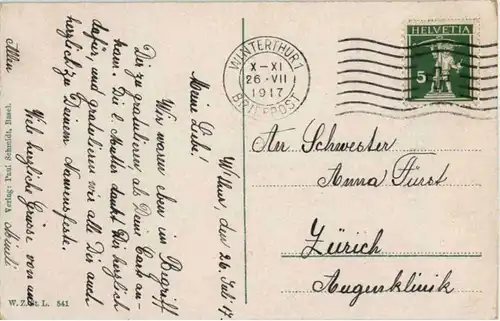 W'thur den 26. Juli 17.
Meine Liebe!
Wir waren eben im Begriff
Dir zu gratulieren als Deine Carte an-
kam. Die l. Mutter dankt Dir herzlich
dafür, und gratulieren wir alle Dir auch
herzlich zu Deinem Namensfeste.
Viele herzliche Grüsse von uns
Allen
WINTERTHUR 1
X-XI
26·VII
1917
BRIEFPOST
HELVETIA
5
Schwester
Anna Fürst
Zürich
Augenklinik
Verlag: Paul Schmidt, Basel.
W. Z. St. L. 541